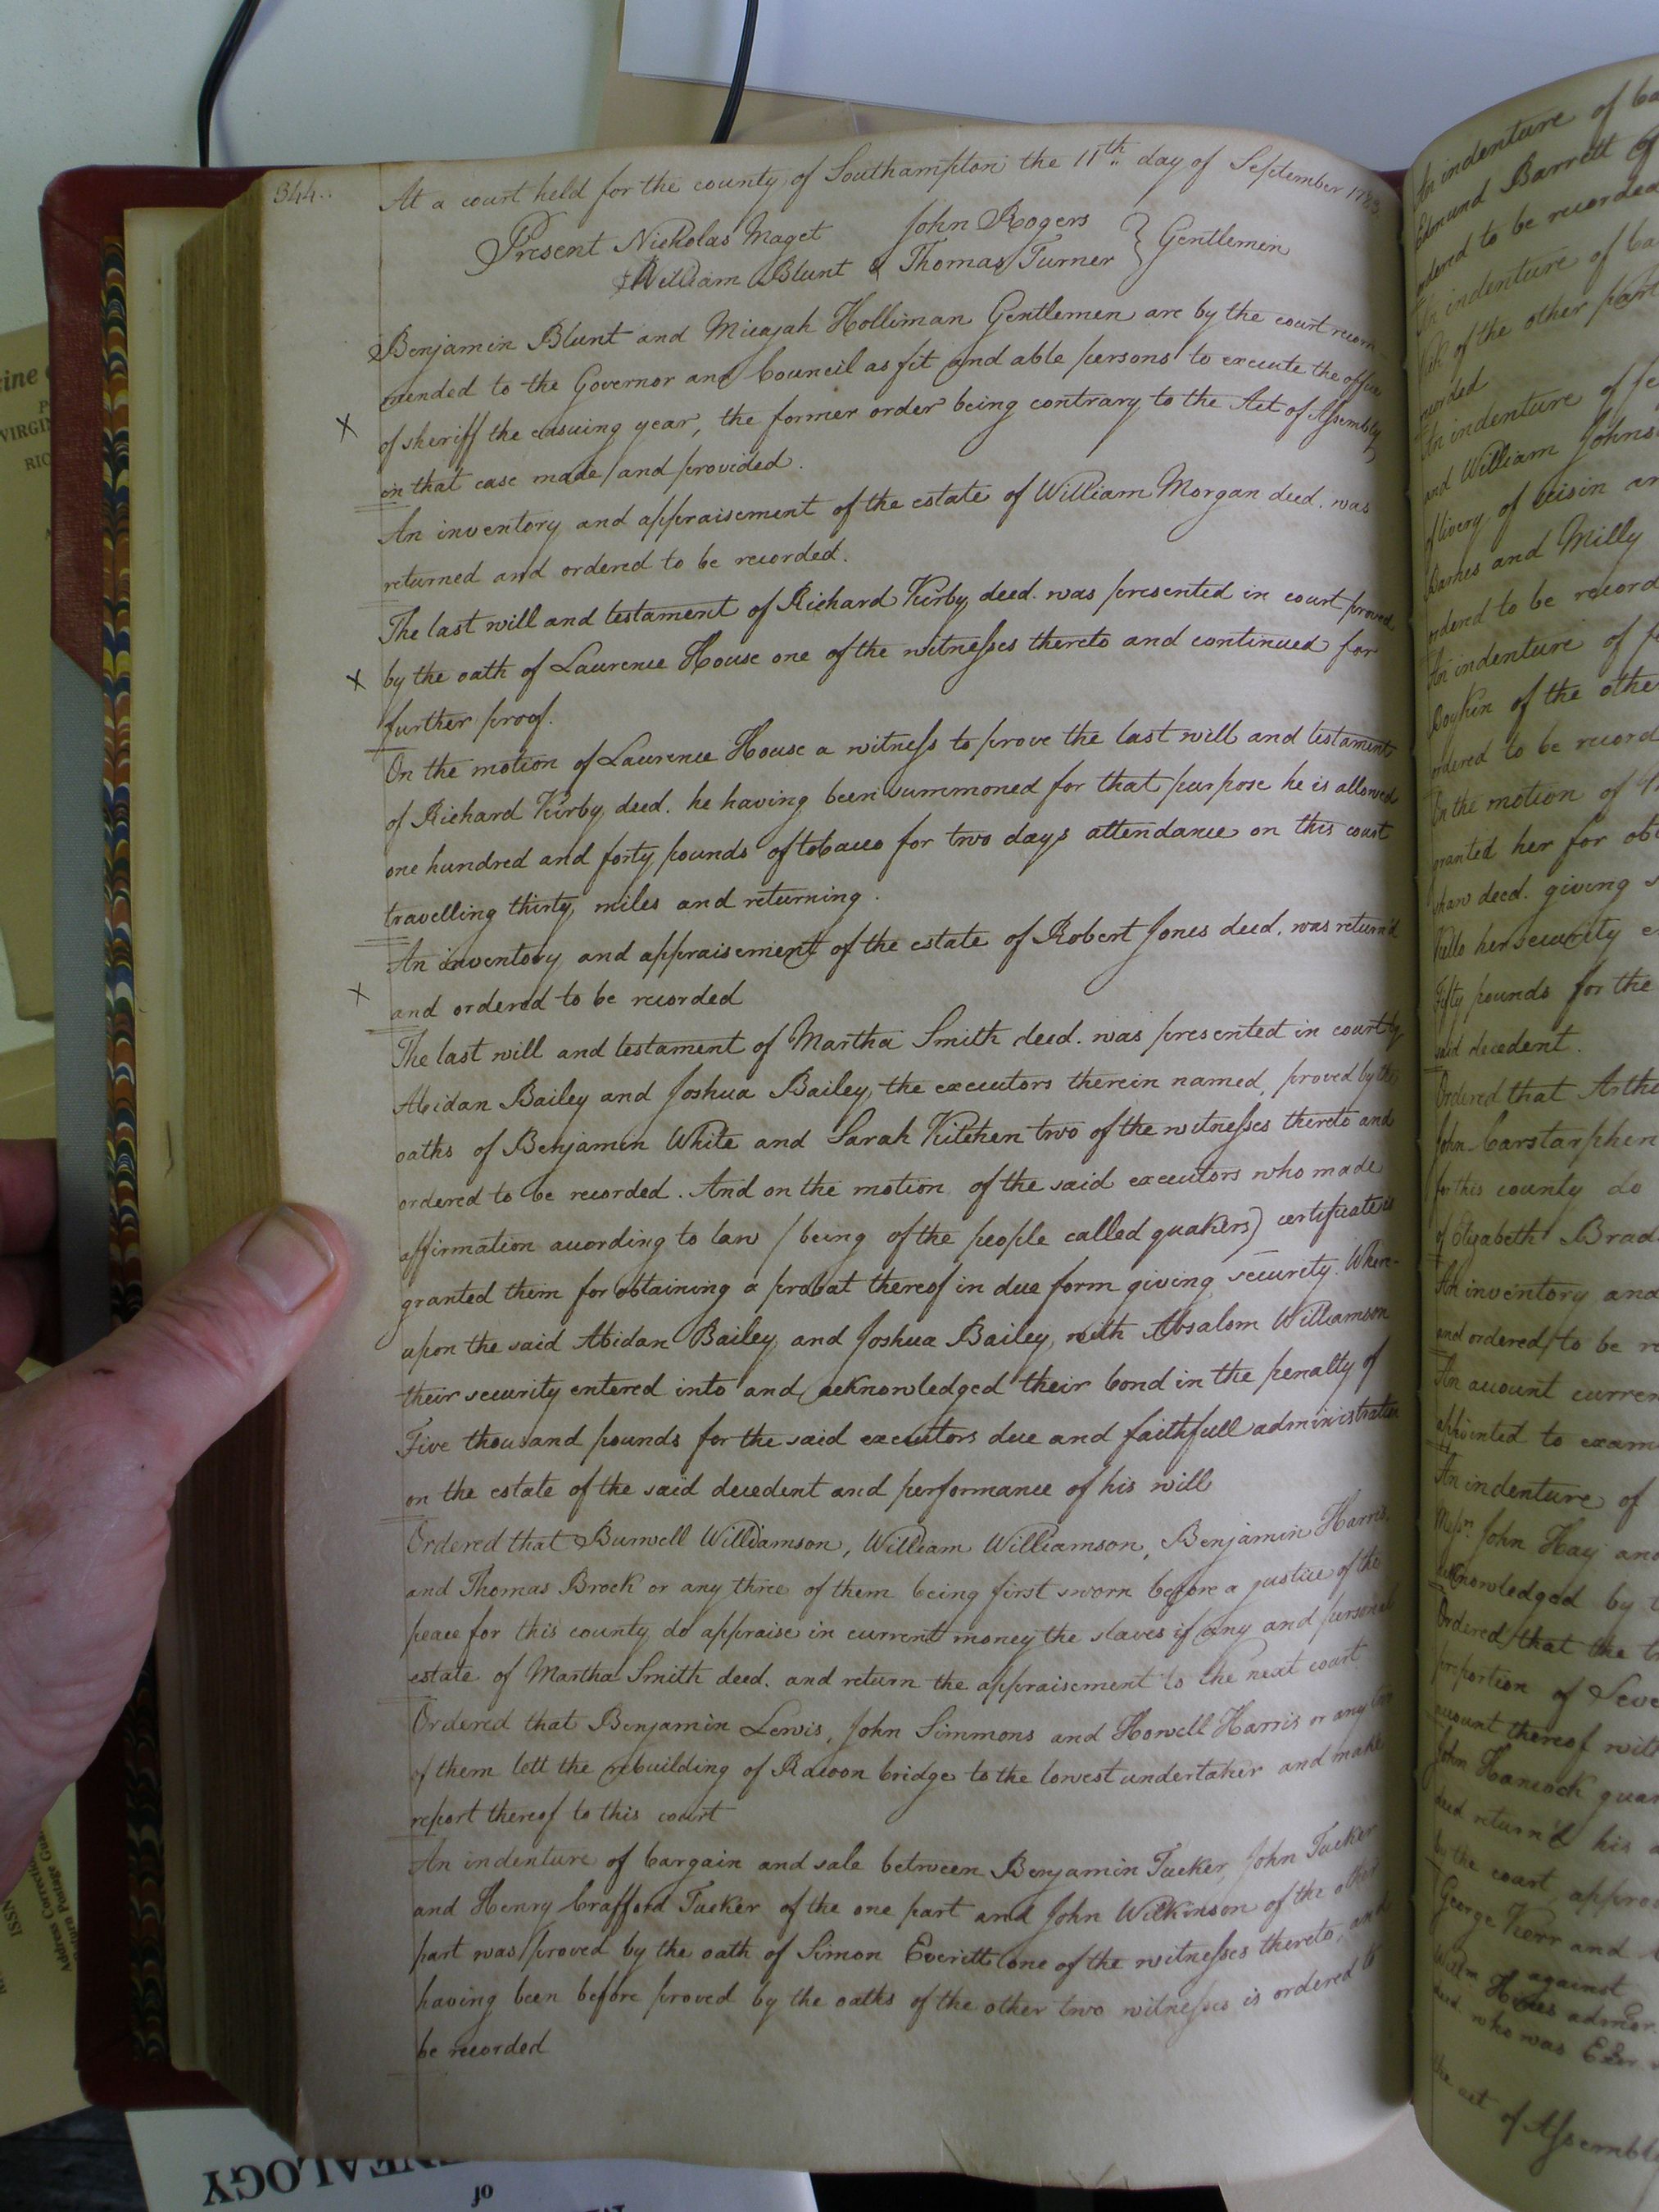 344..
At a court held for the county of Southampton the 11th day of September 1783
Present Nicholas Maget John Rogers } Gentlemen
William Blunt & Thomas Turner
Benjamin Blunt and Micajah Holliman Gentlemen are by the court recom-
mended to the Governor and Council as fit and able persons to execute the office
X of sheriff the ensuing year, the former order being contrary to the Act of Assembly
in that case made and provided.
An inventory and appraisement of the estate of William Morgan deed. was
returned and ordered to be recorded.
The last will and testament of Richard Kirby deed. was presented in court proved
X by the oath of Laurence House one of the witnesses thereto and continued for
further proof.
On the motion of Laurence House a witness to prove the last will and testament
of Richard Kirby deed. he having been summoned for that purpose he is allowed
one hundred and forty pounds of tobacco for two days attendance on this court
travelling thirty miles and returning.
An inventory and appraisement of the estate of Robert Jones deed. was return'd
X and ordered to be recorded
The last will and testament of Martha Smith deed. was presented in court by
Abidan Bailey and Joshua Bailey, the executors therein named, proved by the
oaths of Benjamin White and Sarah Kitchen two of the witnesses thereto and
ordered to be recorded. And on the motion of the said executors who made
affirmation according to law (being of the people called quakers) certificate is
granted them for obtaining a probat thereof in due form giving security. Where-
upon the said Abidan Bailey and Joshua Bailey, with Absalom Williamson
their security entered into and acknowledged their bond in the penalty of
Five thousand pounds for the said executors due and faithfull administration
on the estate of the said decedent and performance of his will
Ordered that Burwell Williamson, William Williamson, Benjamin Harris,
and Thomas Brock or any three of them being first sworn before a justice of the
peace for this county do appraise in current money the slaves if any and personal
estate of Martha Smith deed. and return the appraisement to the next court
Ordered that Benjamin Lewis, John Simmons and Howell Harris or any two
of them lett the rebuilding of Racoon bridge to the lowest undertaker and make
report thereof to this court
An indenture of bargain and sale between Benjamin Tucker, John Tucker
and Henry Crafford Tucker of the one part and John Wilkinson of the other
part was proved by the oath of Simon Everitt one of the witnesses thereto, and
having been before proved by the oaths of the other two witnesses is ordered to
be recorded
An indenture of ba
Edmund Barrett
ordered to be recorded
An indenture of ba
of the other part
An indenture of
and William Johns
livery of seisin an
Barnes and Milly
ordered to be record
An indenture of
Boykin of the othe
ordered to be record
On the motion of
granted her for ob
shaw deed. giving s
Kello her security e
Fifty pounds for the
said decedent.
Ordered that Arthu
John Carstarphen
for this county do
of Elizabeth Brad
An inventory and
and ordered to be re
An account curren
appointed to exam
An indenture of
Messrs John Hay and
acknowledged by t
Ordered that the tr
proportion of Seve
account thereof wit
John Hancock guar
deed return'd his a
by the court appro
George Kerr and
against
Hines admor.
deed. who was Exer
the act of Assembly
VIRGIN
RIC
ISSN
Address Correction
Return Postage Gua
GENEALOGY
of